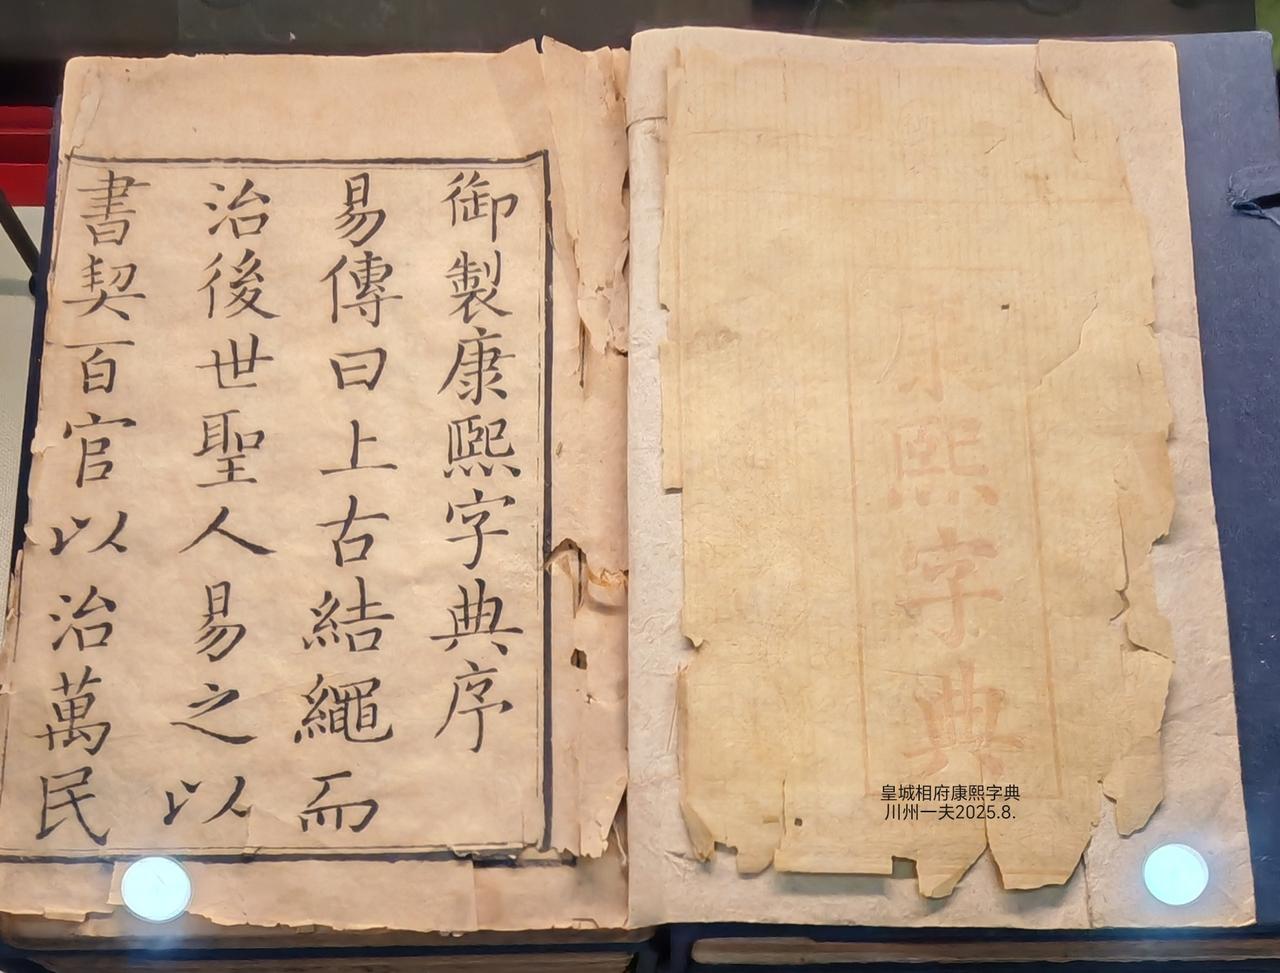 康熙字典
御製康熙字典序
易傳曰上古結繩而
治後世聖人易之以
書契百官以治萬民
皇城相府康熙字典
川州一夫2025.8.